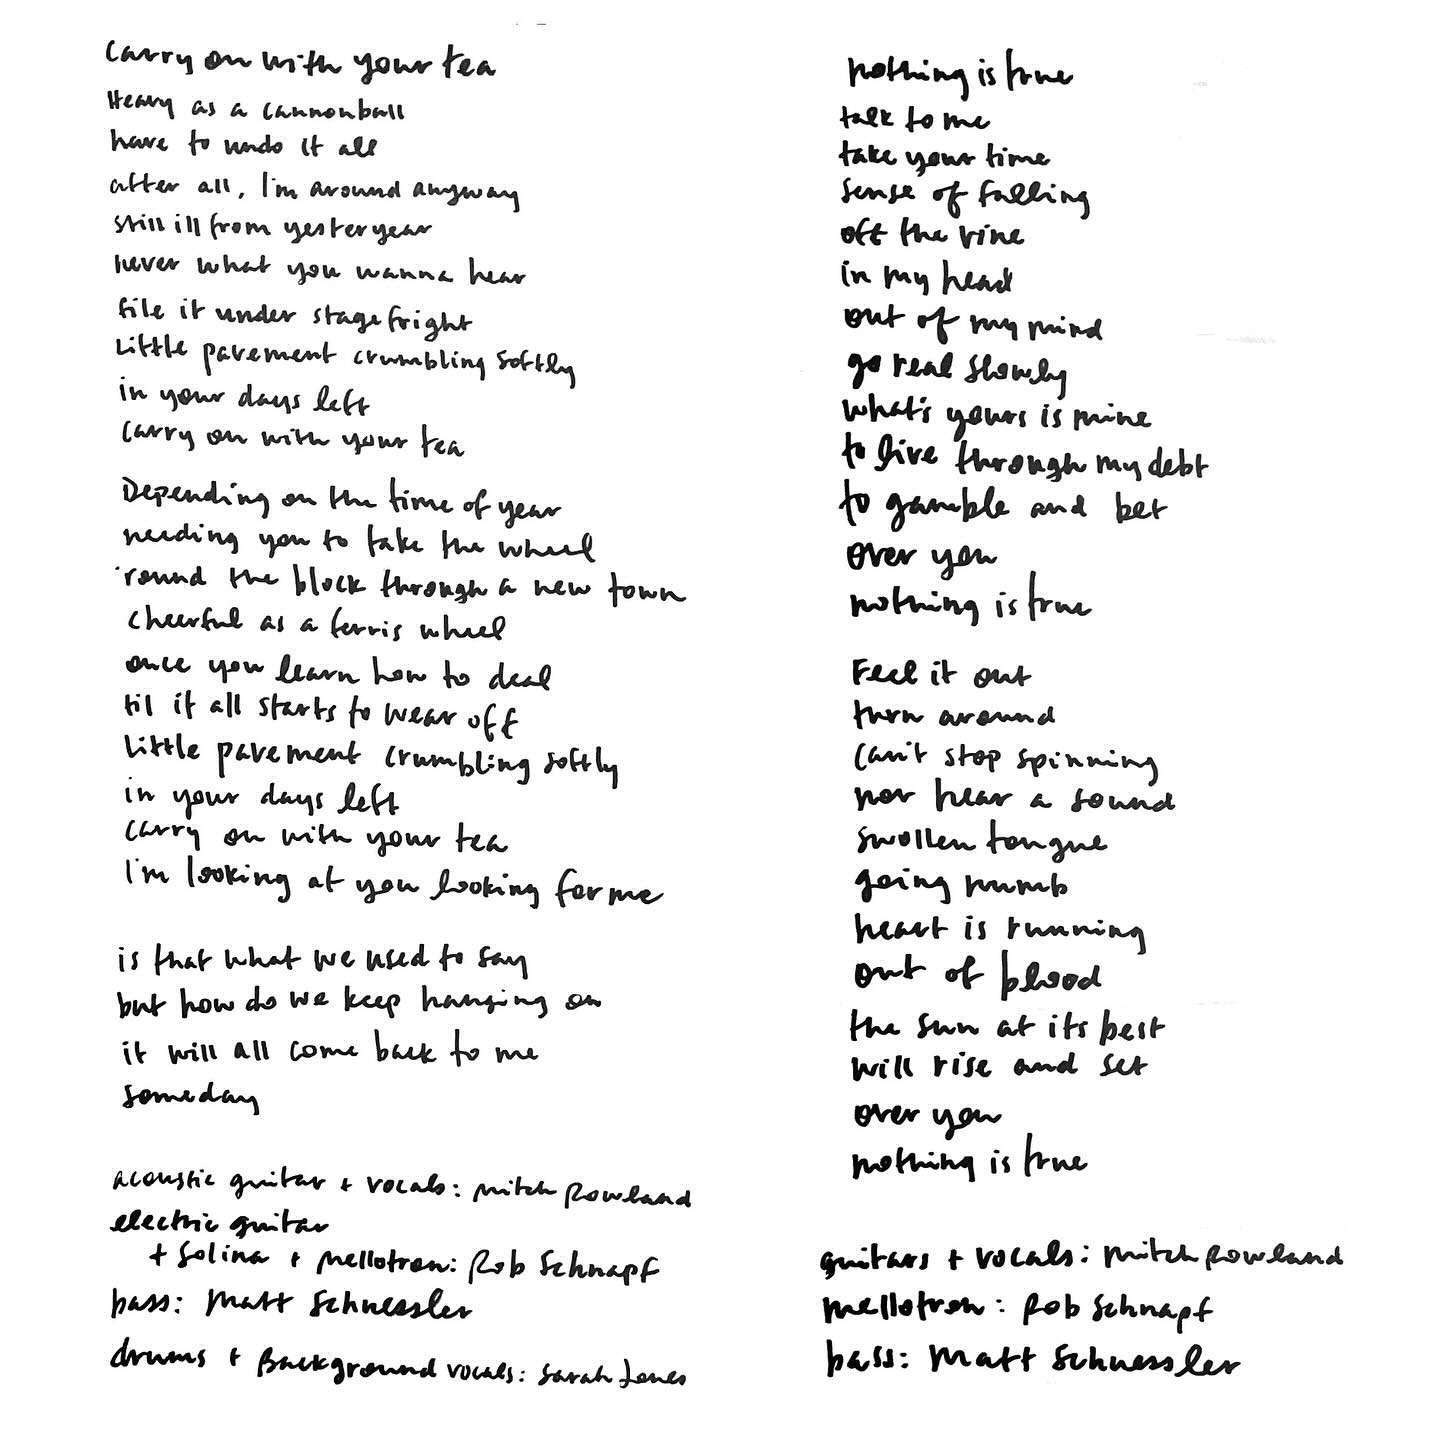 Carry on with your tea
Heavy as a cannonball
have to undo it all
after all, I'm around anyway
still ill from yesteryear
never what you wanna hear
file it under stagefright
Little pavement crumbling softly
in your days left
carry on with your tea
Depending on the time of year
needing you to take the wheel
'round the block through a new town
cheerful as a ferris wheel
once you learn how to deal
til it all starts to wear off
Little pavement crumbling softly
in your days left
carry on with your tea
I'm looking at you looking for me
is that what we used to say
but how do we keep hanging on
it will all come back to me
someday
acoustic guitar + vocals: Mitch Rowland
electric guitar
+ Solina + Mellotron: Rob Schnapf
bass: Matt Schuessler
drums + Background vocals: Sarah Jones
nothing is true
talk to me
take your time
sense of falling
off the vine
in my head
out of my mind
go real slowly
what's yours is mine
to live through my debt
to gamble and bet
over you
nothing is true
Feel it out
turn around
can't stop spinning
nor hear a sound
swollen tongue
going numb
heart is running
out of blood
the sun at its best
will rise and set
over you
nothing is true
guitars + vocals: Mitch Rowland
mellotron: Rob Schnapf
bass: Matt Schuessler